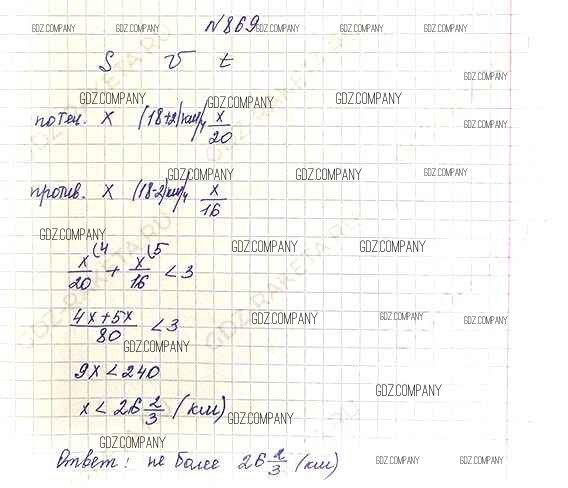 №869.
GDZ.COMPANY GDZ.COMPANY GDZ.COMPANY GDZ.COMPANY GDZ.COMPANY
S V t
GDZ.COMPANY
GDZ.COMPANY GDZ.COMPANY GDZ.COMPANY
по теч. x (18+2)км/ч x/20
GDZ.COMPANY
GDZ.COMPANY GDZ.COMPANY GDZ.COMPANY
против. x (18-2)км/ч x/16
GDZ.COMPANY GDZ.COMPANY GDZ.COMPANY
x/20 (4 + x/16 (5 < 3
GDZ.COMPANY GDZ.COMPANY GDZ.COMPANY
(4x+5x)/80 < 3
GDZ.COMPANY
9x < 240
GDZ.COMPANY
x < 26 2/3 (км)
GDZ.COMPANY
GDZ.COMPANY
Ответ: не более 26 2/3 (км)
GDZ.COMPANY GDZ.COMPANY
GDZ-RAKETA.RU